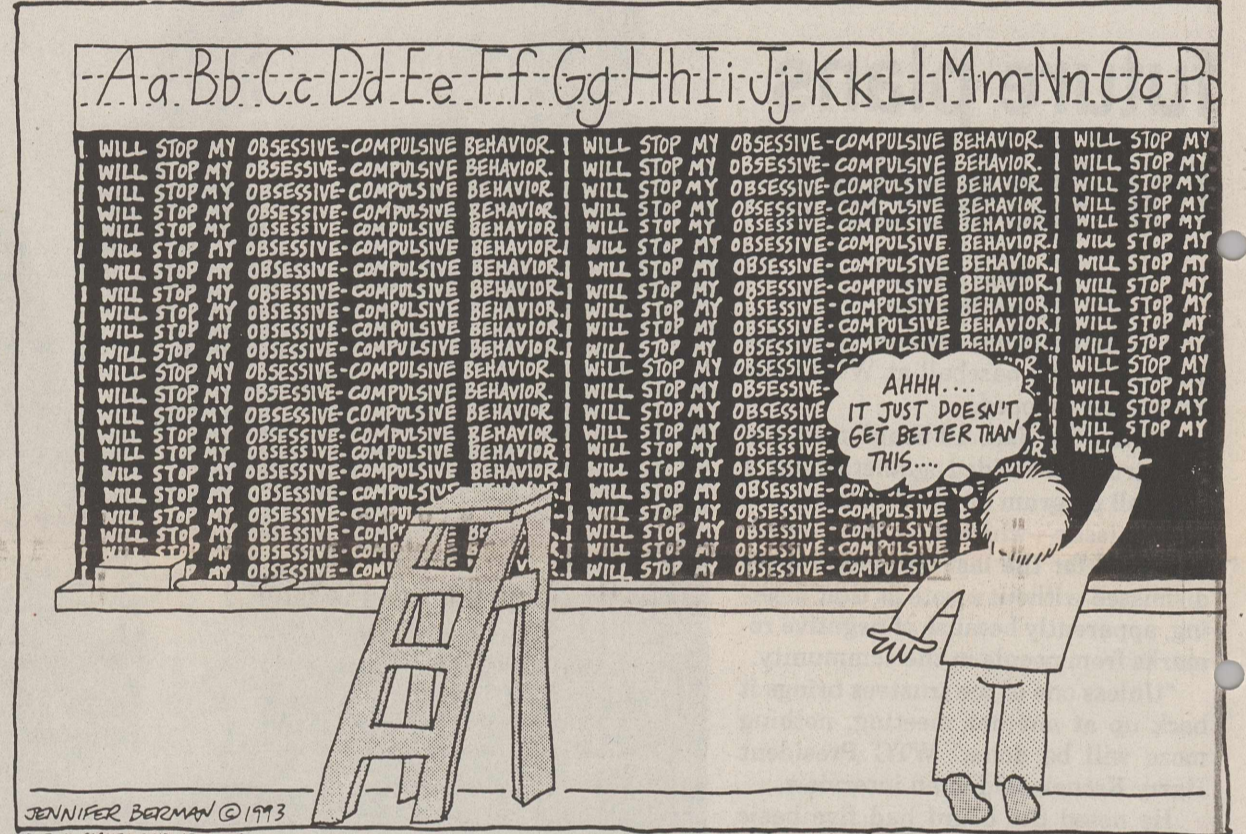 Aa Bb Cc Dd Ee Ff Gg Hh Ii Jj Kk Ll Mm Nn Oo Pp
I WILL STOP MY OBSESSIVE-COMPULSIVE BEHAVIOR. I WILL STOP MY OBSESSIVE-COMPULSIVE BEHAVIOR. I WILL STOP MY
I WILL STOP MY OBSESSIVE-COMPULSIVE BEHAVIOR. I WILL STOP MY OBSESSIVE-COMPULSIVE BEHAVIOR. I WILL STOP MY
I WILL STOP MY OBSESSIVE-COMPULSIVE BEHAVIOR. I WILL STOP MY OBSESSIVE-COMPULSIVE BEHAVIOR. I WILL STOP MY
I WILL STOP MY OBSESSIVE-COMPULSIVE BEHAVIOR. I WILL STOP MY OBSESSIVE-COMPULSIVE BEHAVIOR. I WILL STOP MY
I WILL STOP MY OBSESSIVE-COMPULSIVE BEHAVIOR. I WILL STOP MY OBSESSIVE-COMPULSIVE BEHAVIOR. I WILL STOP MY
I WILL STOP MY OBSESSIVE-COMPULSIVE BEHAVIOR. I WILL STOP MY OBSESSIVE-COMPULSIVE BEHAVIOR. I WILL STOP MY
I WILL STOP MY OBSESSIVE-COMPULSIVE BEHAVIOR. I WILL STOP MY OBSESSIVE-COMPULSIVE BEHAVIOR. I WILL STOP MY
I WILL STOP MY OBSESSIVE-COMPULSIVE BEHAVIOR. I WILL STOP MY OBSESSIVE-COMPULSIVE BEHAVIOR. I WILL STOP MY
I WILL STOP MY OBSESSIVE-COMPULSIVE BEHAVIOR. I WILL STOP MY OBSESSIVE-COMPULSIVE BEHAVIOR. I WILL STOP MY
I WILL STOP MY OBSESSIVE-COMPULSIVE BEHAVIOR. I WILL STOP MY OBSESSIVE-COMPULSIVE BEHAVIOR. I WILL STOP MY
I WILL STOP MY OBSESSIVE-COMPULSIVE BEHAVIOR. I WILL STOP MY OBSESSIVE-COMPULSIVE BEHAVIOR. I WILL STOP MY
I WILL STOP MY OBSESSIVE-COMPULSIVE BEHAVIOR. I WILL STOP MY OBSESSIVE- I WILL STOP MY
I WILL STOP MY OBSESSIVE-COMPULSIVE BEHAVIOR. I WILL STOP MY OBSESSIVE I WILL STOP MY
I WILL STOP MY OBSESSIVE-COMPULSIVE BEHAVIOR. I WILL STOP MY OBSESSIVE I WILL STOP MY
I WILL STOP MY OBSESSIVE-COMPULSIVE BEHAVIOR. I WILL STOP MY OBSESSIVE I WILL STOP MY
I WILL STOP MY OBSESSIVE-COMPULSIVE BEHAVIOR. I WILL STOP MY OBSESSIVE- I WILL
I WILL STOP MY OBSESSIVE-COMPULSIVE BEHAVIOR. I WILL STOP MY OBSESSIVE-
I WILL STOP MY OBSESSIVE-COMPULSIVE I WILL STOP MY OBSESSIVE-
I WILL STOP MY OBSESSIVE- I WILL STOP MY OBSESSIVE-COMPULSIVE
I WILL STOP MY OBSESSIVE- I WILL STOP MY OBSESSIVE-COMPULSIVE
I WILL STOP MY OBSESSIVE- I WILL STOP MY OBSESSIVE-COMPULSIVE
STOP MY OBSESSIVE- I WILL STOP MY OBSESSIVE-COMPULSIVE
AHHH....
IT JUST DOESN'T
GET BETTER THAN
THIS....
JENNIFER BERMAN © 1993